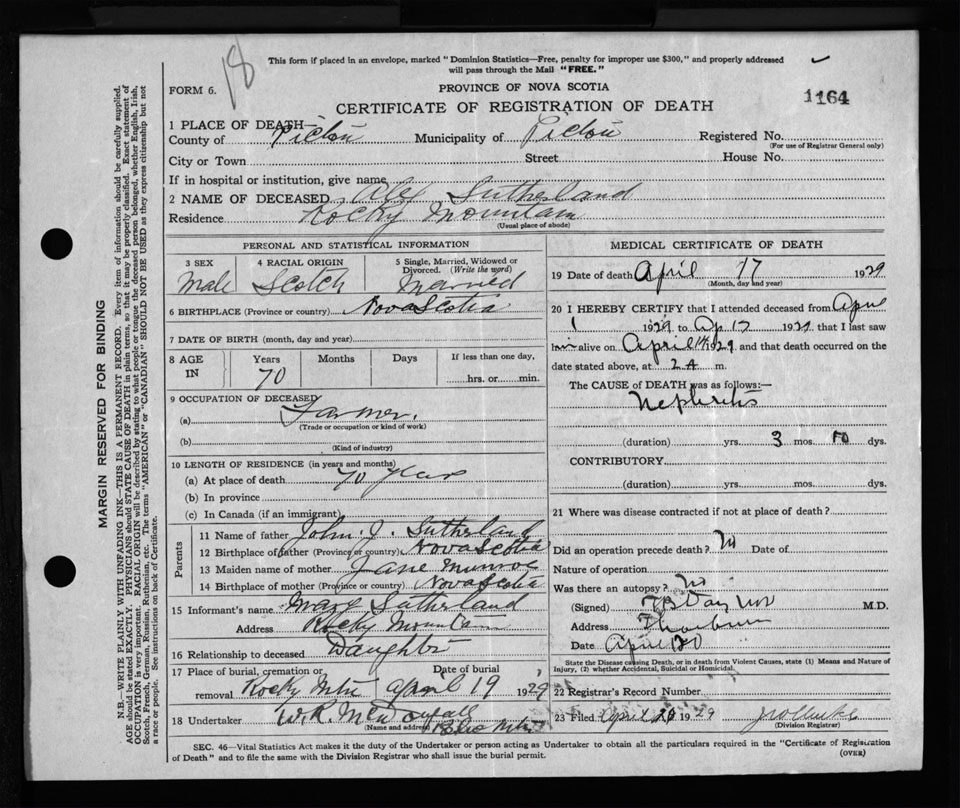 18
This form if placed in an envelope, marked "Dominion Statistics—Free, penalty for improper use $300," and properly addressed
will pass through the Mail "FREE."
FORM 6.
PROVINCE OF NOVA SCOTIA
1164
CERTIFICATE OF REGISTRATION OF DEATH
1 PLACE OF DEATH—
County of Pictou Municipality of Pictou Registered No.
(For use of Registrar General only)
City or Town Street House No.
If in hospital or institution, give name
2 NAME OF DECEASED Alex Sutherland
Residence Rocky Mountain
(Usual place of abode)
PERSONAL AND STATISTICAL INFORMATION
3 SEX 4 RACIAL ORIGIN 5 Single, Married, Widowed or
Divorced. (Write the word)
Male Scotch Married
6 BIRTHPLACE (Province or country) Nova Scotia
7 DATE OF BIRTH (month, day and year)
8 AGE IN Years Months Days If less than one day,
70 hrs. or min.
9 OCCUPATION OF DECEASED
(a) Farmer.
(Trade or occupation or kind of work)
(b)
(Kind of industry)
10 LENGTH OF RESIDENCE (in years and months)
(a) At place of death 70 years
(b) In province
(c) In Canada (if an immigrant)
Parents
11 Name of father John J. Sutherland
12 Birthplace of father (Province or country) Nova Scotia
13 Maiden name of mother Jane Munroe
14 Birthplace of mother (Province or country) Nova Scotia
15 Informant's name Sutherland
Address Rocky Mountain
16 Relationship to deceased Daughter
17 Place of burial, cremation or Date of burial
removal Rocky Mtn April 19 1929
18 Undertaker W.R.
(Name and address)
MEDICAL CERTIFICATE OF DEATH
19 Date of death April 17 1929
(Month, day and year)
20 I HEREBY CERTIFY that I attended deceased from April
1 1929 to Ap 17 1929 that I last saw
him alive on April 1929 and that death occurred on the
date stated above, at 2 A m.
The CAUSE of DEATH was as follows:—
Nephritis
(duration) yrs. 3 mos. 10 dys.
CONTRIBUTORY
(duration) yrs. mos. dys.
21 Where was disease contracted if not at place of death?
Did an operation precede death? No Date of
Nature of operation
Was there an autopsy? No
(Signed) M.D.
Address Thorburn
Date April 20
State the Disease causing Death, or in death from Violent Causes, state (1) Means and Nature of
Injury, (2) whether Accidental, Suicidal or Homicidal.
22 Registrar's Record Number
23 Filed April 1929
(Division Registrar)
SEC. 46—Vital Statistics Act makes it the duty of the Undertaker or person acting as Undertaker to obtain all the particulars required in the "Certificate of Registration
of Death" and to file the same with the Division Registrar who shall issue the burial permit.
(OVER)
MARGIN RESERVED FOR BINDING
N.B.—WRITE PLAINLY WITH UNFADING INK—THIS IS A PERMANENT RECORD. Every item of information should be carefully supplied.
AGE should be stated EXACTLY. PHYSICIANS should STATE CAUSE OF DEATH in plain terms, so that it may be properly classified. Exact statement of
OCCUPATION is very important. RACIAL ORIGIN will be described by stating to what people or tongue the deceased person belonged, whether English, Irish,
Scotch, French, German, Russian, Ruthenian, etc. The terms "AMERICAN" or "CANADIAN" SHOULD NOT BE USED as they express citizenship but not
a race or people. See instructions on back of Certificate.